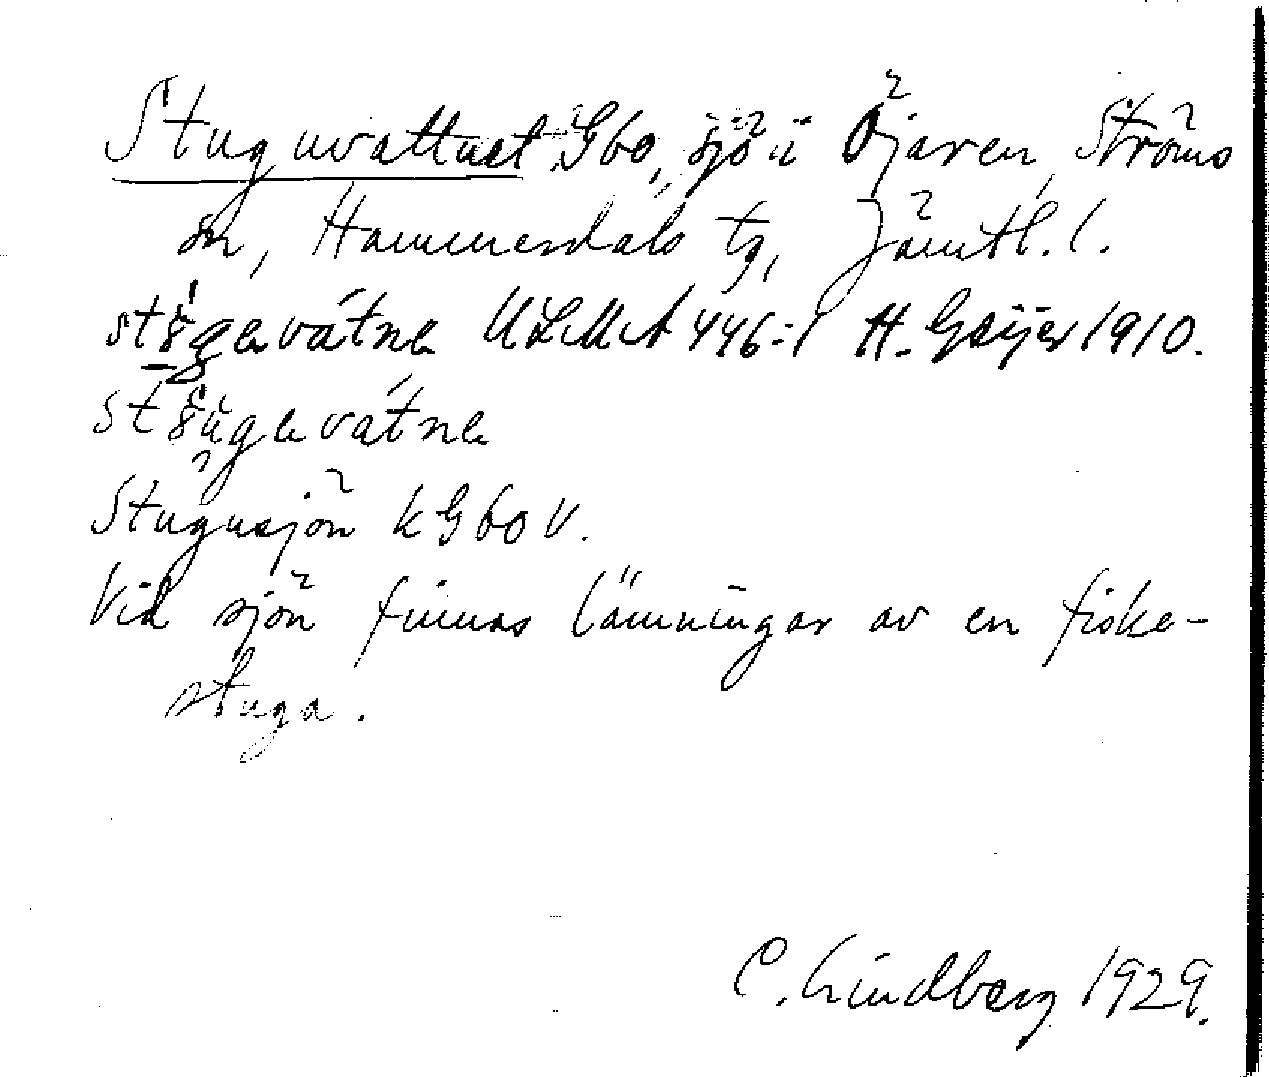 Stuguvattnet Gbo, sjö i Öjaren, Ströms
sn, Hammerdals tg, Jämtl. l.
ULMA 446:1 H. Geijer 1910.
Stugusjön k Gbo V.
Vid sjön finnas lämningar av en fiske-
stuga.
C. Lindberg 1929.